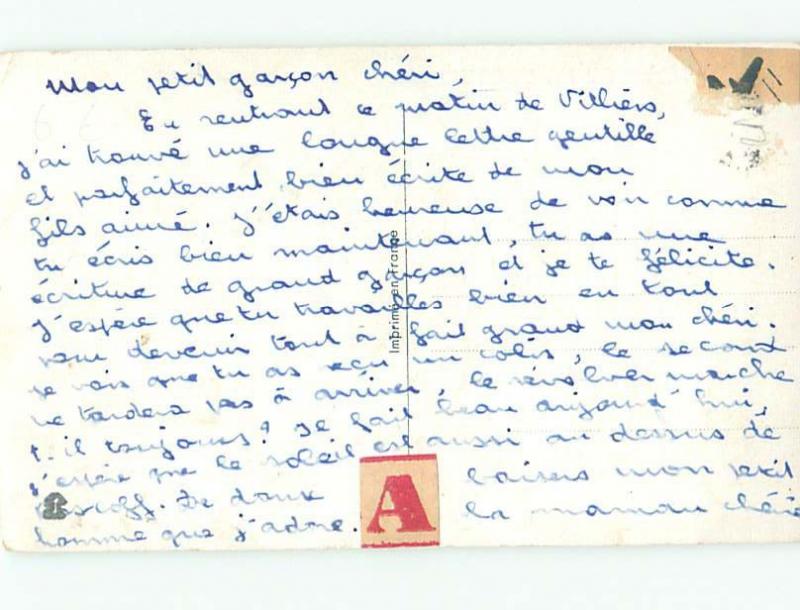 Mon petit garçon chéri,
En rentrant ce matin de Villiers,
j'ai trouvé une longue lettre gentille
et parfaitement bien écrite de mon
fils aimé. J'étais heureuse de voir comme
tu écris bien maintenant, tu as une
écriture de grand garçon et je te félicite.
J'espère que tu travailles bien en tout
pour devenir tout à fait grand mon chéri.
je vois que tu as reçu un colis, le second
ne tardera pas à arriver, le révolver marche
t-il toujours? Il fait beau aujourd'hui,
j'espère que le soleil est aussi au dessus de
Roscoff. De doux baisers mon petit
homme que j'adore. la maman chérie
Imprimé en France
A